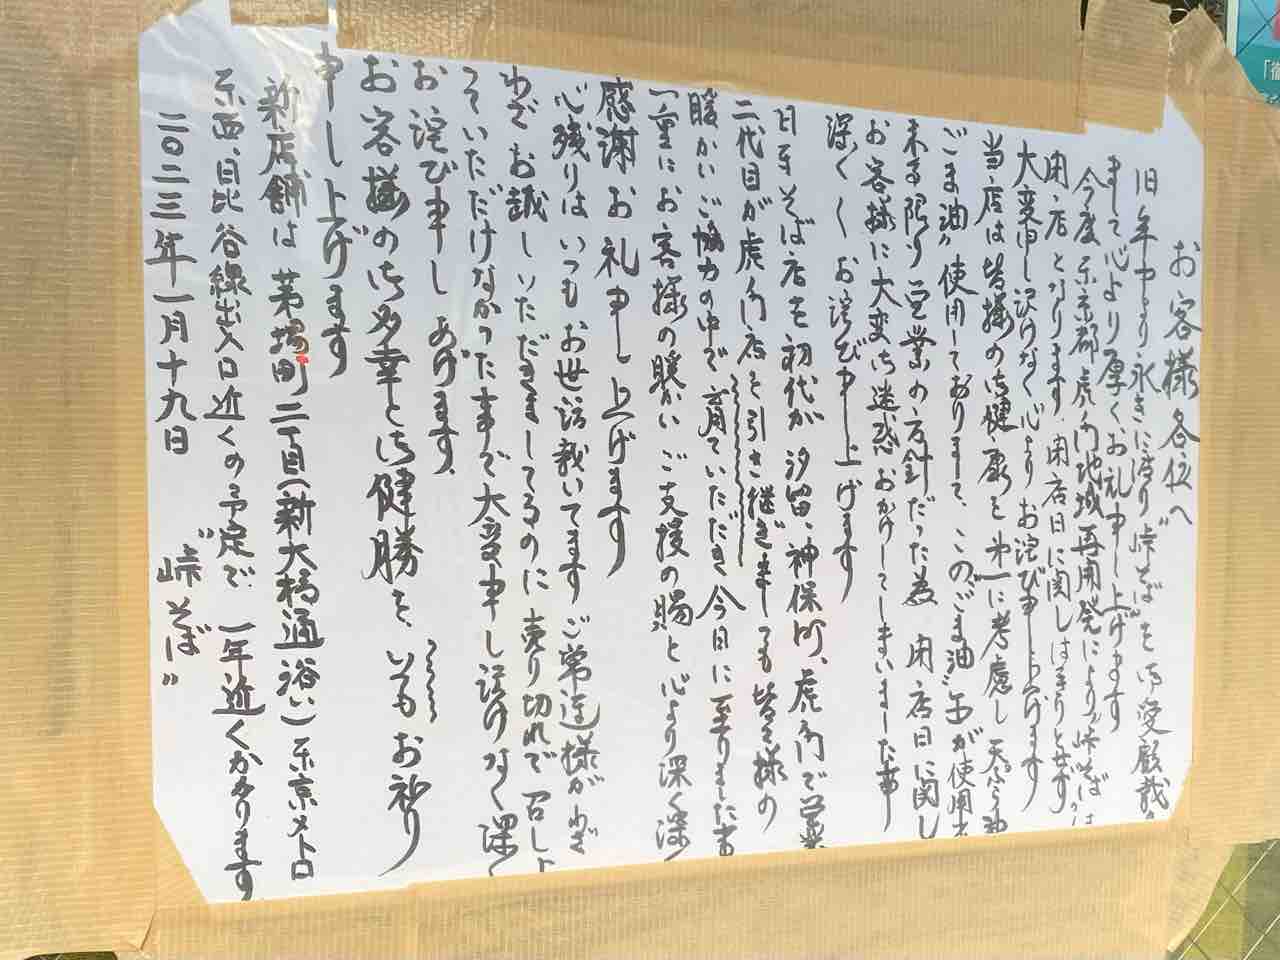 お客様各位へ
旧年中より永きに渡り"峠そば"を御愛顧戴き
まして心より厚くお礼申し上げます
今度東京都虎ノ門地域再開発により"峠そば"は
閉店となります。閉店日に関しはっきりとせず
大変申し訳けなく心よりお詫び申し上げます
当店は皆様の御健康を第一に考慮し天ぷら油
"ごま油"使用しておりまして、この"ごま油"缶が使用出
来る限り営業の方針だった為 閉店日に関し
お客様に大変御迷惑おかけしてしまいました事
深く〱お詫び申し上げます
日本そば店を初代が汐留、神保町、虎ノ門で営業
二代目が虎ノ門店を引き継ぎましても皆々様の
暖かいご協力の中で育ていただき今日に至りました事
一重にお客様の暖かいご支援の賜と心より深く深く
感謝お礼申し上げます
心残りはいつもお世話戴いてますご常連様がわざ
わざお越しいただきましてるのに売り切れで召し上
っていただけなかった事で大変申し訳けなく深く
お詫び申しあげます。
お客様の御多幸と御健勝を、いつもお祈り
申し上げます
新店舗は茅場町二丁目(新大橋通沿い)東京メトロ
東西、日比谷線出入口近くの予定で一年近くかかります
二〇二三年一月十九日
"峠そば"
「徹